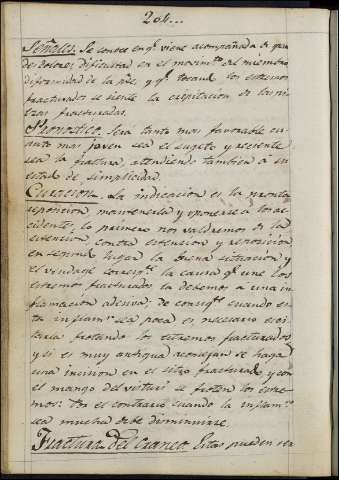 204...
Señales. Se conoce en q.e viene acompañada de gran-
des dolores, dificultad en el movim.to del miembro
diformidad de la p.te, y q.e tocand. los estremos
fracturados se siente la crepitacion de las pie-
zas fracturadas.
Pronostico. Sera tanto mas favorable cu-
anto mas joven sea el sugeto y reciente
sea la fractura, atendiendo tambien à su
estado de simplicidad.
Curacion. La indicacion es la pronta
reposicion mantenerla y oponerse à los ac-
cidentes, lo primero nos valdremos de la
estension, contra estension y reposicion,
en segund. lugar la buena situacion y
el vendage correisp.te la causa q.e une los
estremos fracturados la debemos à una in-
flamacion adesiva; de consig.te cuando es-
ta inflam.on sea poca es necesario exsi-
tarla frotando los estremos fracturados
y si es muy antigua aconsejan se haga
una incision en el sitio fracturad. y con
el mango del visturi se froten los estre-
mos: Por el contrario cuando la inflam.on
sea mucha debe disminuirse.
Fractura del Craneo. Estas pueden ser